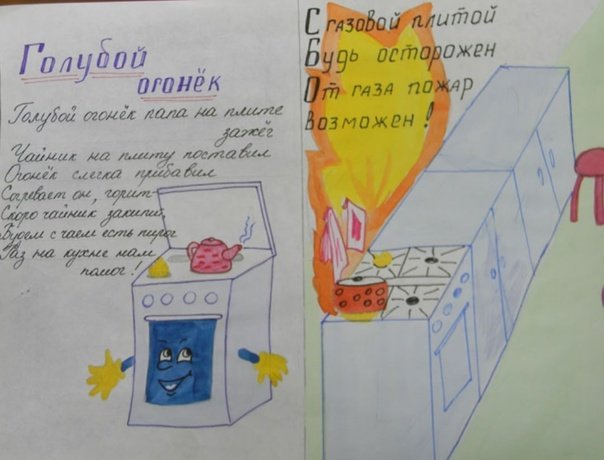 Голубой
огонёк
Голубой огонёк папа на плите
зажёг
Чайник на плиту поставил
Огонёк слегка прибавил
Согревает он, горит
Скоро чайник закипит,
Будем с чаем есть пирог
Газ на кухне нам
помог!
С газовой плитой
Будь осторожен
От газа пожар
Возможен!